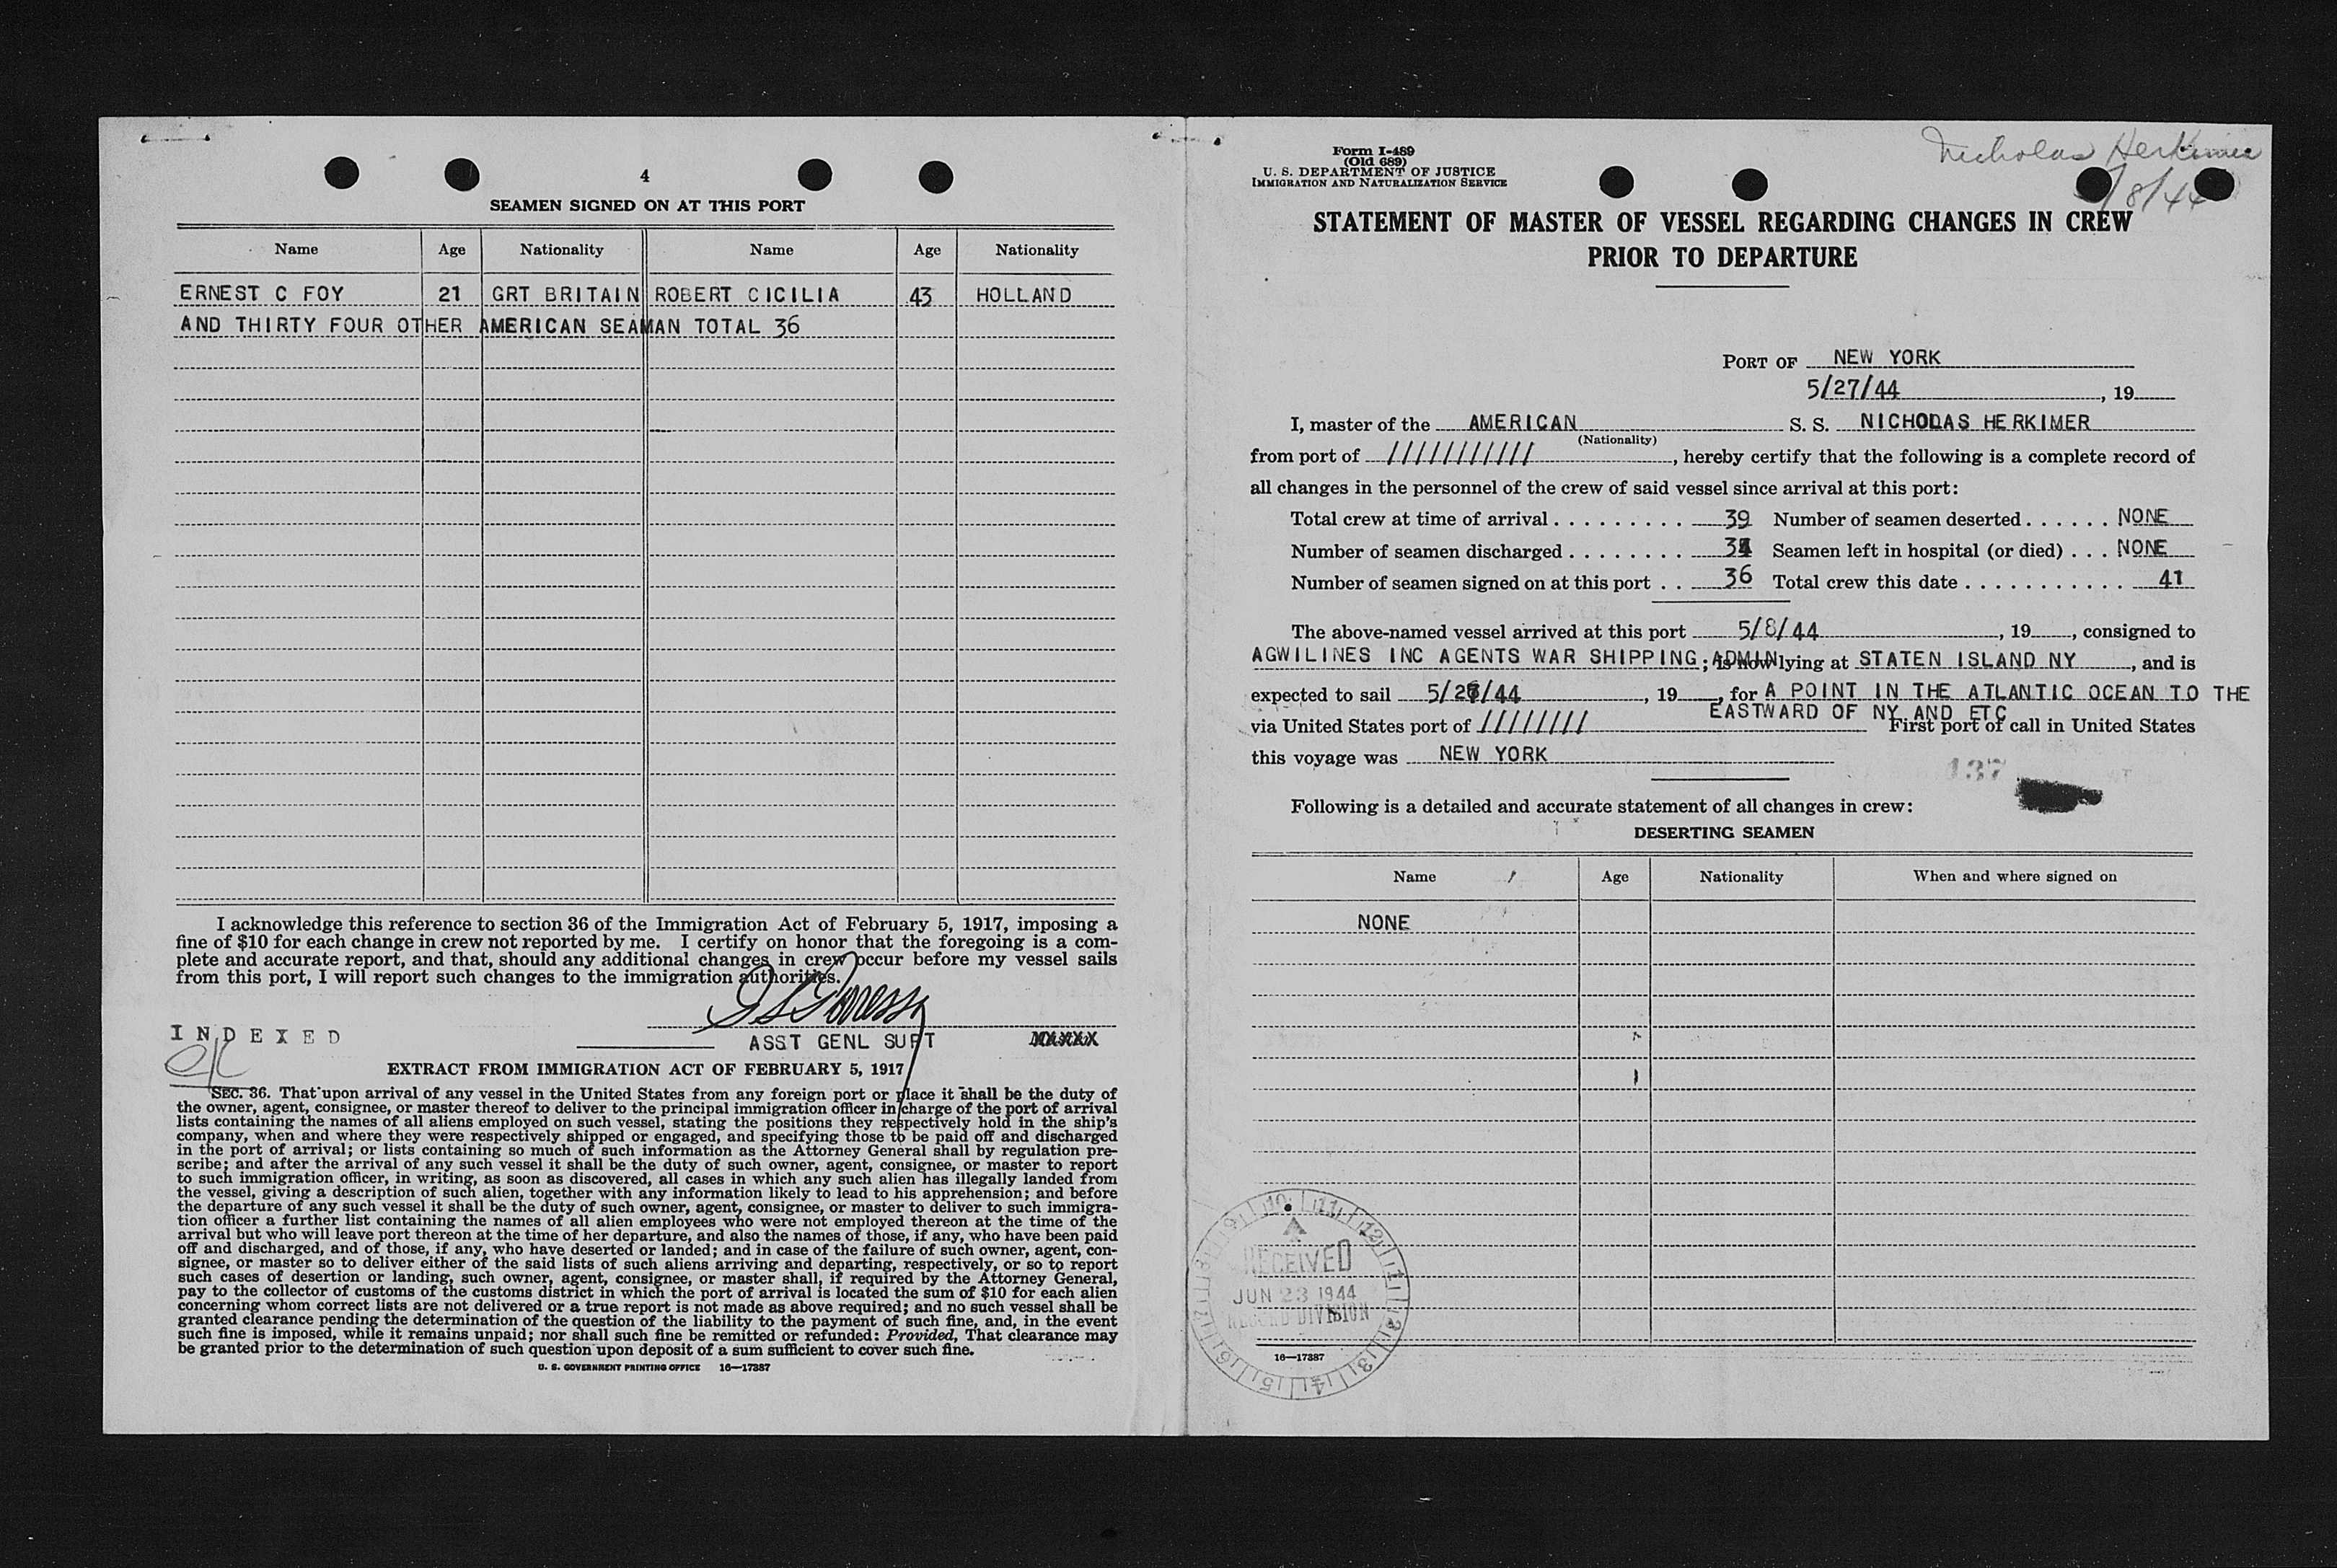 4
SEAMEN SIGNED ON AT THIS PORT
Name Age Nationality Name Age Nationality
ERNEST C FOY 21 GRT BRITAIN ROBERT CICILIA 43 HOLLAND
AND THIRTY FOUR OTHER AMERICAN SEAMAN TOTAL 36
I acknowledge this reference to section 36 of the Immigration Act of February 5, 1917, imposing a
fine of $10 for each change in crew not reported by me. I certify on honor that the foregoing is a com-
plete and accurate report, and that, should any additional changes in crew occur before my vessel sails
from this port, I will report such changes to the immigration authorities.
INDEXED
ASST GENL SUPT
EXTRACT FROM IMMIGRATION ACT OF FEBRUARY 5, 1917
SEC. 36. That upon arrival of any vessel in the United States from any foreign port or place it shall be the duty of
the owner, agent, consignee, or master thereof to deliver to the principal immigration officer in charge of the port of arrival
lists containing the names of all aliens employed on such vessel, stating the positions they respectively hold in the ship's
company, when and where they were respectively shipped or engaged, and specifying those to be paid off and discharged
in the port of arrival; or lists containing so much of such information as the Attorney General shall by regulation pre-
scribe; and after the arrival of any such vessel it shall be the duty of such owner, agent, consignee, or master to report
to such immigration officer, in writing, as soon as discovered, all cases in which any such alien has illegally landed from
the vessel, giving a description of such alien, together with any information likely to lead to his apprehension; and before
the departure of any such vessel it shall be the duty of such owner, agent, consignee, or master to deliver to such immigra-
tion officer a further list containing the names of all alien employees who were not employed thereon at the time of the
arrival but who will leave port thereon at the time of her departure, and also the names of those, if any, who have been paid
off and discharged, and of those, if any, who have deserted or landed; and in case of the failure of such owner, agent, con-
signee, or master so to deliver either of the said lists of such aliens arriving and departing, respectively, or so to report
such cases of desertion or landing, such owner, agent, consignee, or master shall, if required by the Attorney General,
pay to the collector of customs of the customs district in which the port of arrival is located the sum of $10 for each alien
concerning whom correct lists are not delivered or a true report is not made as above required; and no such vessel shall be
granted clearance pending the determination of the question of the liability to the payment of such fine, and, in the event
such fine is imposed, while it remains unpaid; nor shall such fine be remitted or refunded: Provided, That clearance may
be granted prior to the determination of such question upon deposit of a sum sufficient to cover such fine.
U. S. GOVERNMENT PRINTING OFFICE 16—17387
Nicholas Herkimer
/8/44
Form I-489
(Old 689)
U. S. DEPARTMENT OF JUSTICE
IMMIGRATION AND NATURALIZATION SERVICE
STATEMENT OF MASTER OF VESSEL REGARDING CHANGES IN CREW
PRIOR TO DEPARTURE
PORT OF NEW YORK
5/27/44, 19
I, master of the AMERICAN S. S. NICHOLAS HERKIMER
(Nationality)
from port of ///////////, hereby certify that the following is a complete record of
all changes in the personnel of the crew of said vessel since arrival at this port:
Total crew at time of arrival 39 Number of seamen deserted NONE
Number of seamen discharged Seamen left in hospital (or died) NONE
Number of seamen signed on at this port 36 Total crew this date 41
The above-named vessel arrived at this port 5/8/44, 19, consigned to
AGWILINES INC AGENTS WAR SHIPPING ADMIN; is now lying at STATEN ISLAND NY, and is
expected to sail 5/2/44, 19, for A POINT IN THE ATLANTIC OCEAN TO THE
EASTWARD OF NY AND ETC
via United States port of //////// First port of call in United States
this voyage was NEW YORK
137
Following is a detailed and accurate statement of all changes in crew:
DESERTING SEAMEN
Name Age Nationality When and where signed on
NONE
RECEIVED
JUN 23 1944
RECORD DIVISION
16—17387